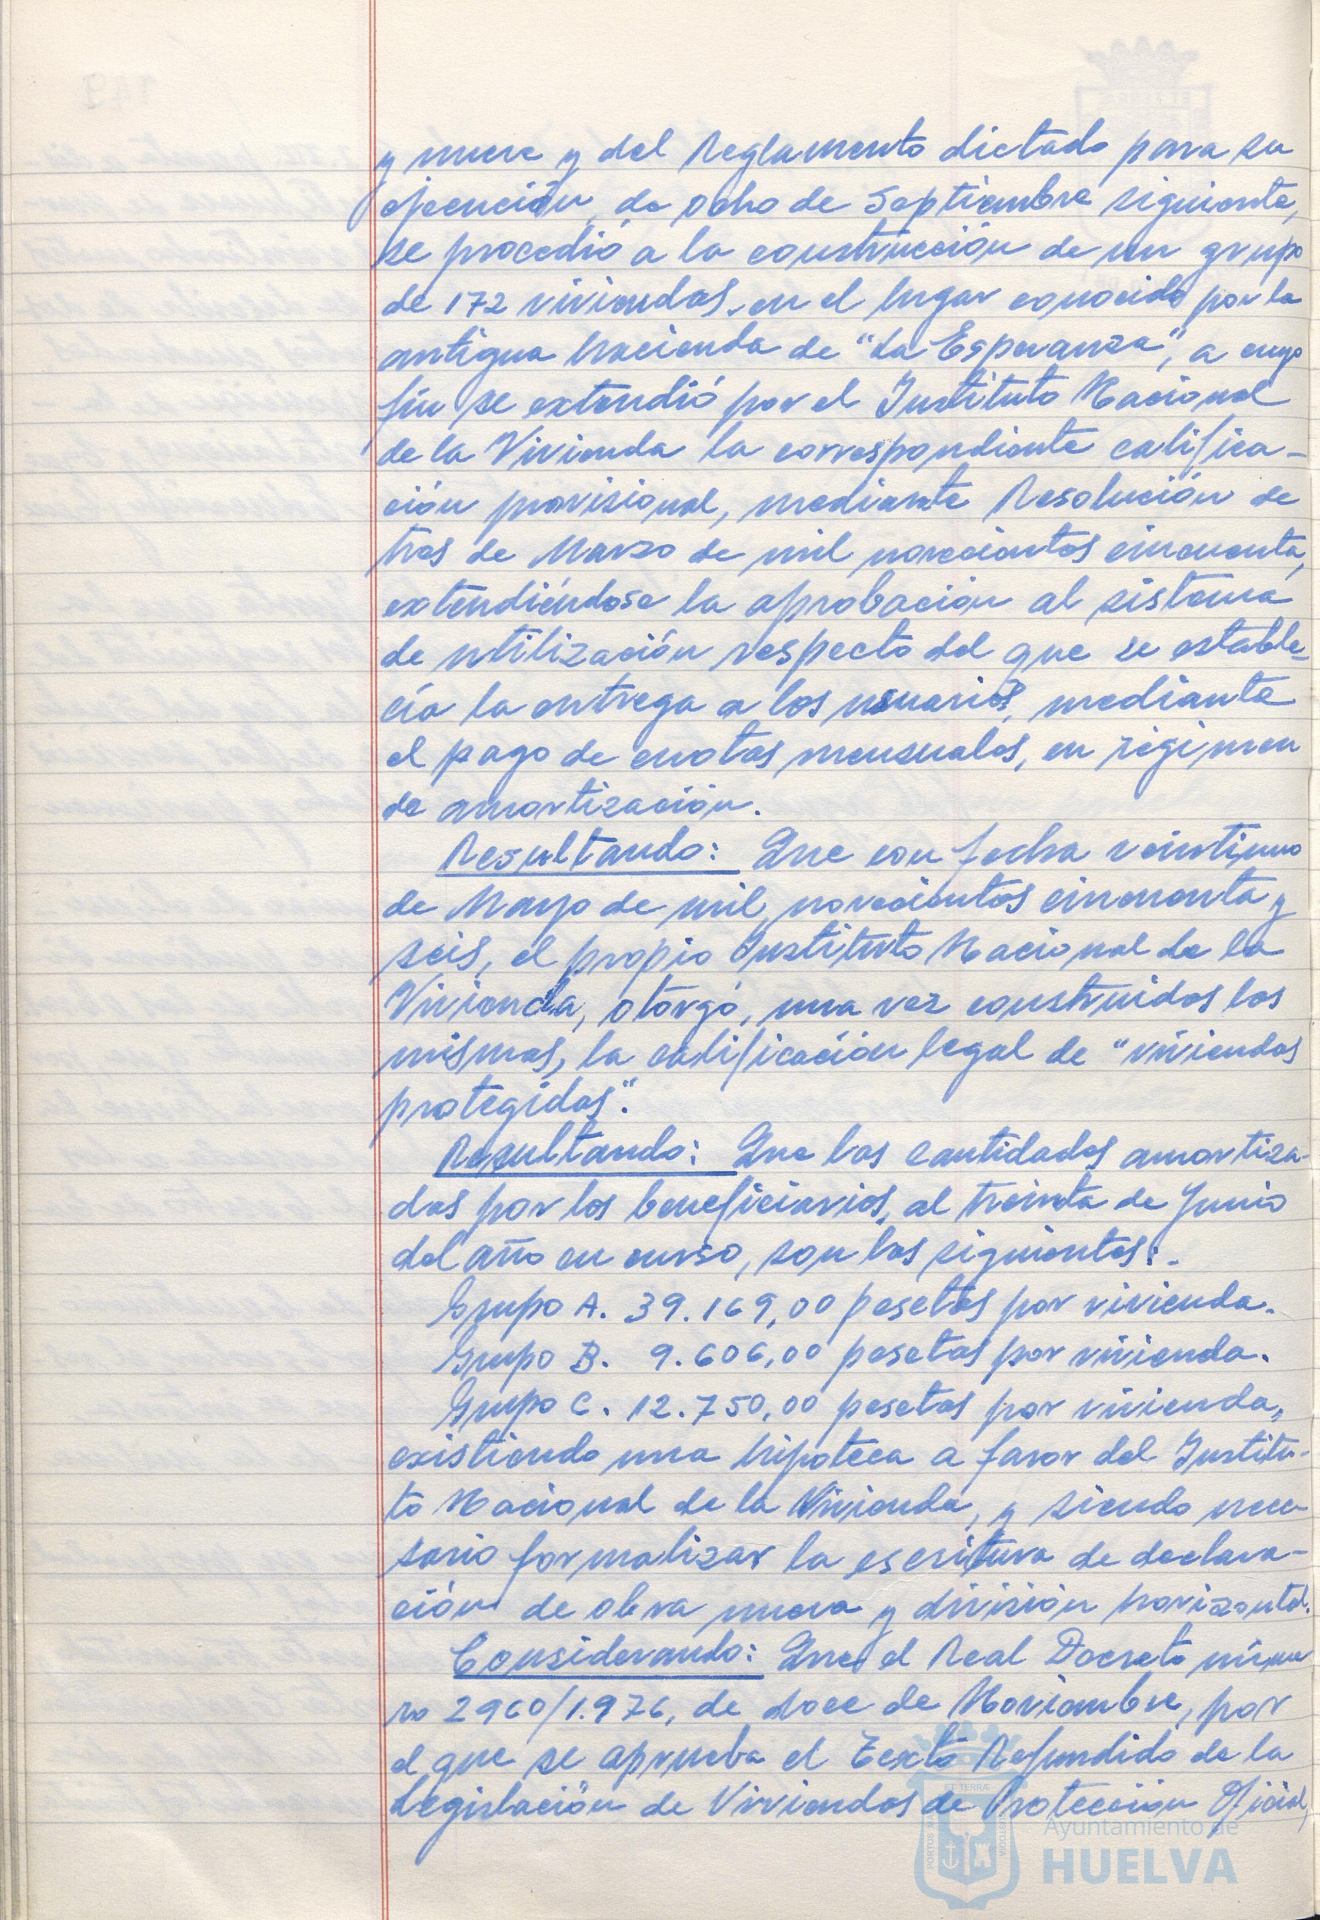 y nueve y del Reglamento dictado para su
ejecución, de ocho de Septiembre siguiente,
se procedió a la construcción de un grupo
de 172 viviendas, en el lugar conocido por la
antigua hacienda de "La Esperanza", a cuyo
fin se extendió por el Instituto Nacional
de la Vivienda la correspondiente califica-
ción provisional, mediante Resolución de
tres de Marzo de mil novecientos cincuenta,
extendiéndose la aprobación al sistema
de utilización respecto del que se estable-
cía la entrega a los usuarios, mediante
el pago de cuotas mensuales, en régimen
de amortización.
Resultando: Que con fecha veintiuno
de Mayo de mil novecientos cincuenta y
seis, el propio Instituto Nacional de la
Vivienda, otorgó, una vez construidos los
mismas, la calificación legal de "viviendas
protegidas".
Resultando: Que las cantidades amortiza-
das por los beneficiarios, al treinta de Junio
del año en curso, son las siguientes:-
Grupo A. 39.169,00 pesetas por vivienda.
Grupo B. 9.606,00 pesetas por vivienda.
Grupo C. 12.750,00 pesetas por vivienda,
existiendo una hipoteca a favor del Institu-
to Nacional de la Vivienda, y siendo nece-
sario formalizar la escritura de declara-
ción de obra nueva y división horizontal.
Considerando: Que el Real Decreto núme-
ro 2960/1.976, de doce de Noviembre, por
el que se aprueba el Texto Refundido de la
Legislación de Viviendas de Protección Oficial,
Ayuntamiento de
HUELVA